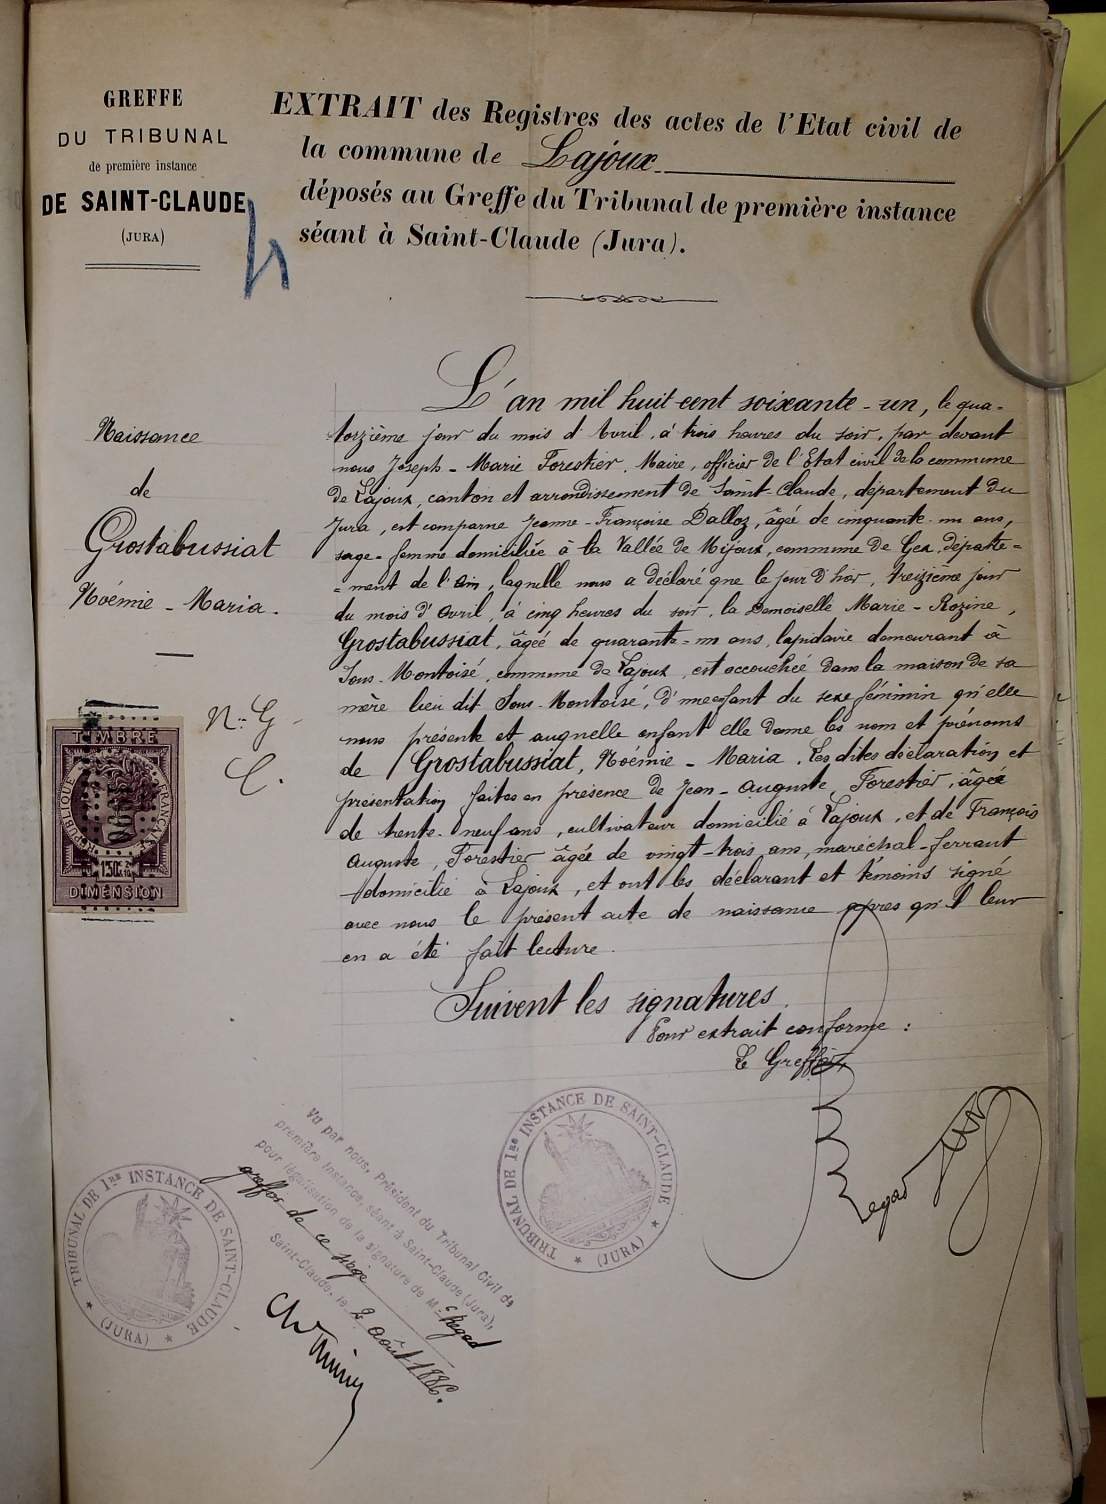 GREFFE
DU TRIBUNAL
de première instance
DE SAINT-CLAUDE
(JURA)
EXTRAIT des Registres des actes de l'Etat civil de
la commune de Lajoux
déposés au Greffe du Tribunal de première instance
séant à Saint-Claude (Jura).
Naissance
de
Grostabussiat
Noémie - Maria.
N. G
C.
TIMBRE
RÉPUBLIQUE FRANÇAISE
1,50c
DIMENSION
L'an mil huit cent soixante-un, le qua-
torzième jour du mois d'Avril, à trois heures du soir, par devant
nous Joseph-Marie Forestier, Maire, officier de l'Etat civil de la commune
de Lajoux, canton et arrondissement de Saint-Claude, département du
Jura, est comparue Jeanne-Françoise Dalloz, âgée de cinquante-un ans,
sage-femme domiciliée à la Vallée de Mijoux, commune de Gex, départe=
=ment de l'Ain, laquelle nous a déclaré que le jour d'hier, treizième jour
du mois d'Avril, à cinq heures du soir, la Demoiselle Marie-Rozine,
Grostabussiat, âgée de quarante-un ans, lapidaire demeurant à
Sous-Montoisé, commune de Lajoux, est accouchée dans la maison de sa
mère lieu dit Sous-Montoisé, d'une enfant du sexe féminin qu'elle
nous présente et auquelle enfant elle donne les nom et prénoms
de Grostabussiat, Noémie-Maria. Les dites déclaration et
présentation faites en présence de Jean-Auguste, Forestier, âgée
de trente-neuf ans, cultivateur domicilié à Lajoux, et de François
Auguste, Forestier âgée de vingt-trois ans, maréchal-ferrant
domicilié à Lajoux, et ont les déclarant et témoins signé
avec nous le présent acte de naissance après qu'il leur
en a été fait lecture.
Suivent les signatures.
Pour extrait conforme :
Le Greffier,
Regad
TRIBUNAL DE 1RE INSTANCE DE SAINT-CLAUDE
(JURA)
Vu par nous, Président du Tribunal Civil de
première Instance, séant à Saint-Claude (Jura),
pour légalisation de la signature de M. Regad
greffier de ce siège
Saint-Claude, le 2 août 1886.
TRIBUNAL DE 1RE INSTANCE DE SAINT-CLAUDE
(JURA)